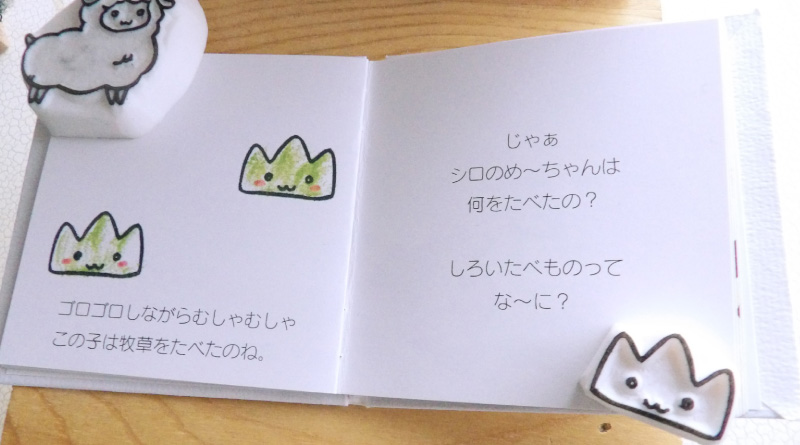 ゴロゴロしながらむしゃむしゃ
この子は牧草をたべたのね。
じゃぁ
シロのめ～ちゃんは
何をたべたの？
しろいたべものって
な～に？